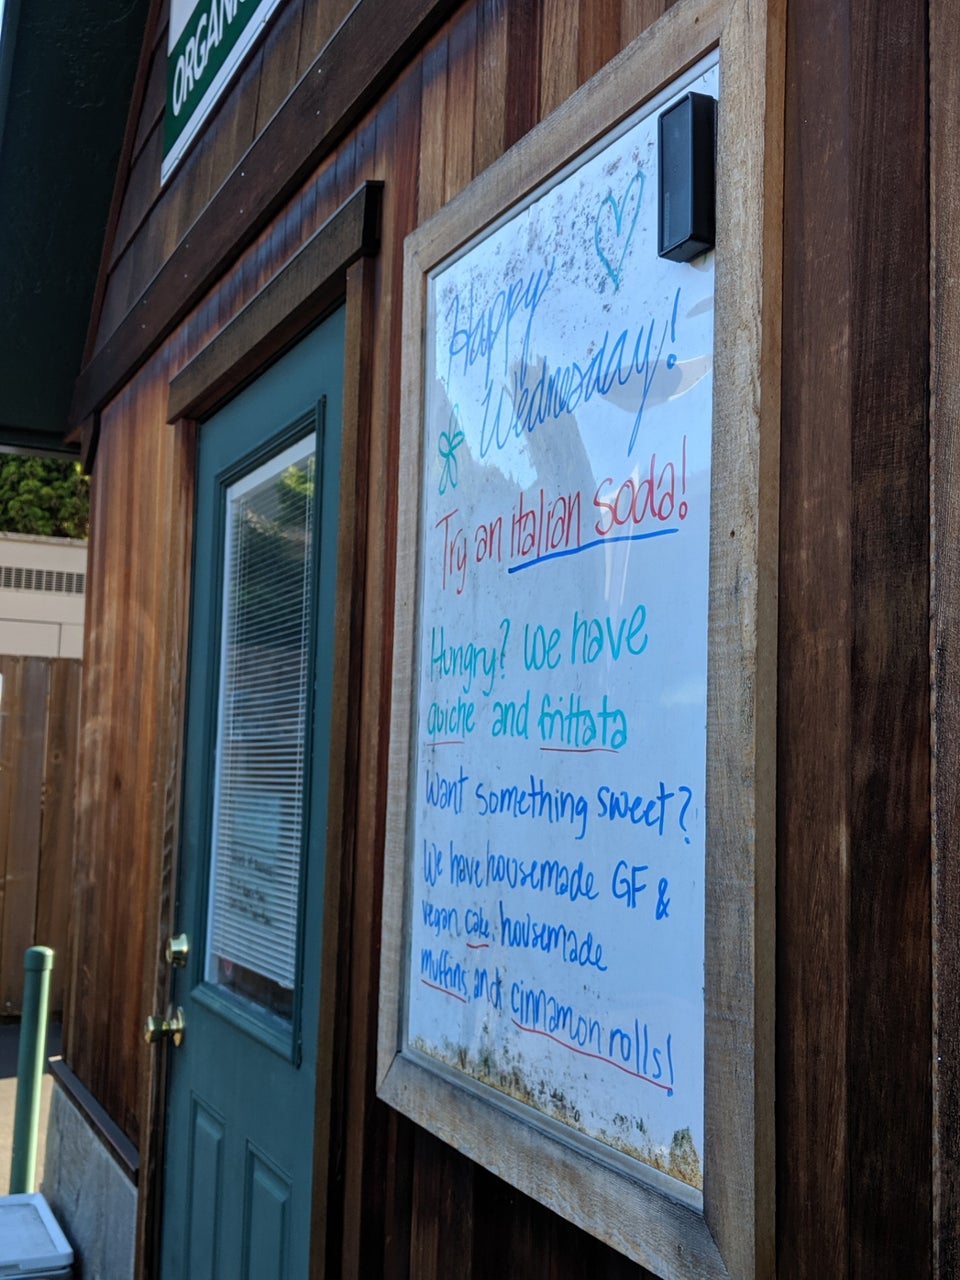 ORGANI
Happy
Wednesday!
Try an italian soda!
Hungry? We have
quiche and frittata
Want something sweet?
We have housemade GF &
vegan cake, housemade
muffins, and cinnamon rolls!